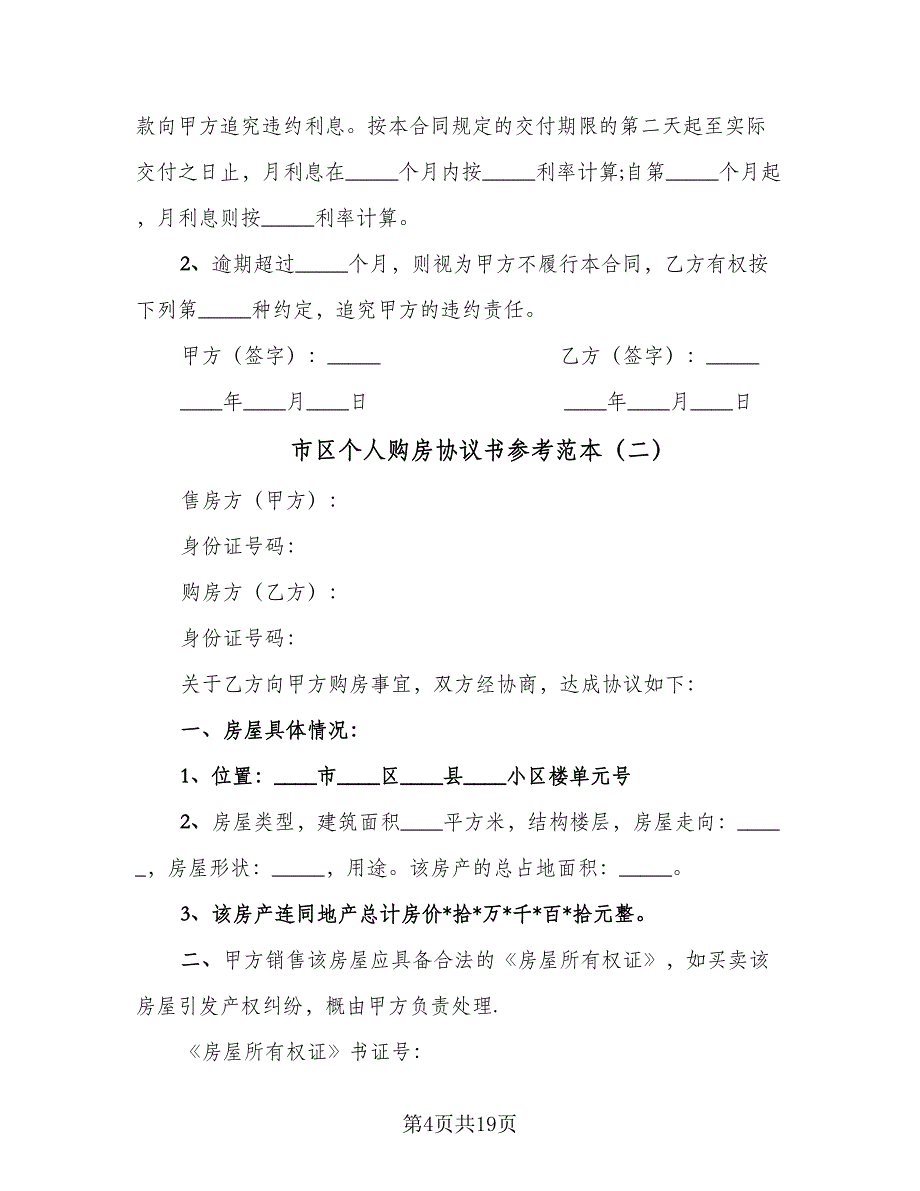 款向甲方追究违约利息。按本合同规定的交付期限的第二天起至实际
交付之日止，月利息在_____个月内按_____利率计算;自第_____个月起
，月利息则按_____利率计算。
2、逾期超过_____个月，则视为甲方不履行本合同，乙方有权按
下列第_____种约定，追究甲方的违约责任。
甲方（签字）：_____ 乙方（签字）：_____
____年____月____日 ____年____月____日
市区个人购房协议书参考范本（二）
售房方（甲方）：
身份证号码：
购房方（乙方）：
身份证号码：
关于乙方向甲方购房事宜，双方经协商，达成协议如下：
一、房屋具体情况：
1、位置：____市____区____县____小区楼单元号
2、房屋类型，建筑面积____平方米，结构楼层，房屋走向：____
_，房屋形状：_____，用途。该房产的总占地面积：_____。
3、该房产连同地产总计房价*拾*万*千*百*拾元整。
二、甲方销售该房屋应具备合法的《房屋所有权证》，如买卖该
房屋引发产权纠纷，概由甲方负责处理.
《房屋所有权证》书证号：
第4页共19页